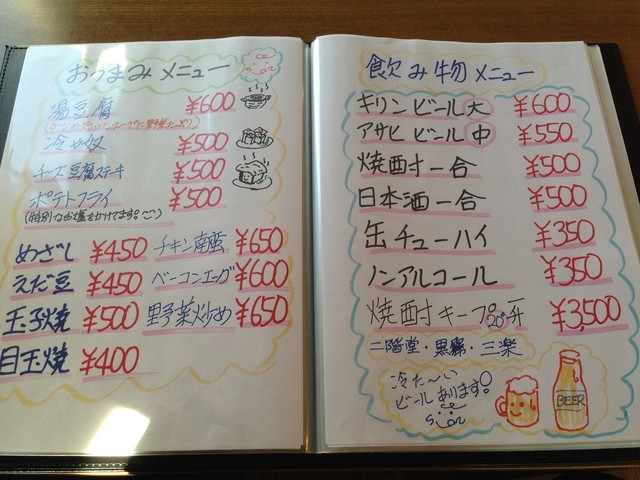 おつまみメニュー
湯豆腐 ¥600
冷や奴 ¥500
チーズ豆腐ステーキ ¥500
ポテトフライ ¥500
(特別なお塩をかけてます。)
めざし ¥450 チキン南蛮 ¥650
えだ豆 ¥450 ベーコンエッグ ¥600
玉子焼 ¥500 野菜炒め ¥650
目玉焼 ¥400
飲み物メニュー
キリンビール大 ¥600
アサヒビール中 ¥550
焼酎一合 ¥500
日本酒一合 ¥500
缶チューハイ ¥350
ノンアルコール ¥350
焼酎キープ 一升 ¥3,500
二階堂・黒霧・三楽
冷た〜い
ビールあります!
BEER